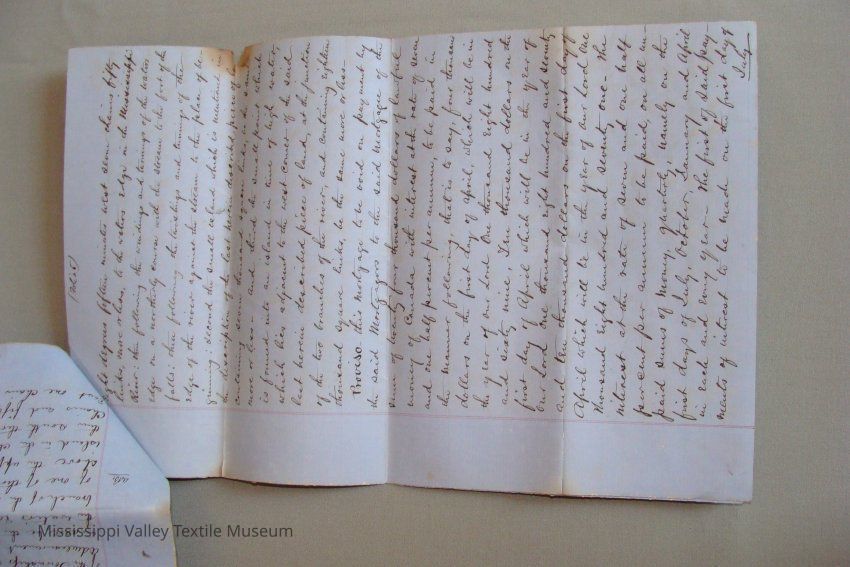 (Folio 5)
eight degrees fifteen minutes West seven chains fifty
links, more or less, to the waters edge in the Mississippi
River: then following the windings and turnings of the waters
edge on a westerly course with the stream to the foot of the
falls: then following the twistings and turnings of the
edge of the river against the stream to the place of be-
ginning: second the small island which is mentioned in
the description of the last herein described piece of land
containing seven thousand square links, be the same
more or less and third the small point which
is formed into an island in time of high water
which lies adjacent to the west corner of the said
last herein described piece of land, at the junction
of the two branches of the river, and containing eighteen
thousand square links, be the same more or less.
Proviso this mortgage to be void on payment by
the said Mortgagors to the said Mortgagee of the
sum of twenty four thousand dollars of lawful
money of Canada with interest at the rate of seven
and one half per cent per annum, to be paid in
the manner following, that is to say, four thousand
dollars on the first day of April, which will be in
the year of our Lord One thousand eight hundred
and sixty nine, Ten thousand dollars on the
first day of April which will be in the year of
Our Lord one thousand eight hundred and seventy
and Ten thousand dollars on the first day of
April which will be in the year of our Lord One
thousand eight hundred and seventy one. The
interest at the rate of seven and one half
per cent per annum to be paid, on all un-
paid sums of money, quarterly, namely on the
first days of July, October, January and April
in each and every year. The first of said pay-
ments of interest to be made on the first day of
July
one chain
chains and fifty
island in the
above the
of one of the
branch of the
Mississippi Valley Textile Museum